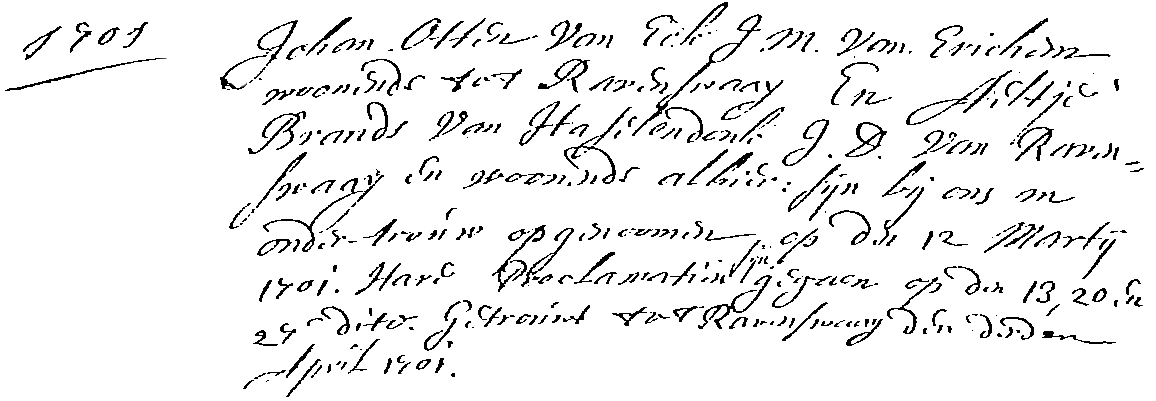 1701
Johan Otten Van Eck J.M. Van Erichem
woonende tot Ravenswaay En Aeltje
Brands Van Haselendonk J.D. Van Raven=
swaay en woonende alhier: sijn bij ons in
ondertrouw opgenoomen, op den 12 Martij
1701. Hare Proclamatien sijn gegaen op den 13, 20 en
27e dito. Getrouwt tot Ravenswaay den darden
April 1701.